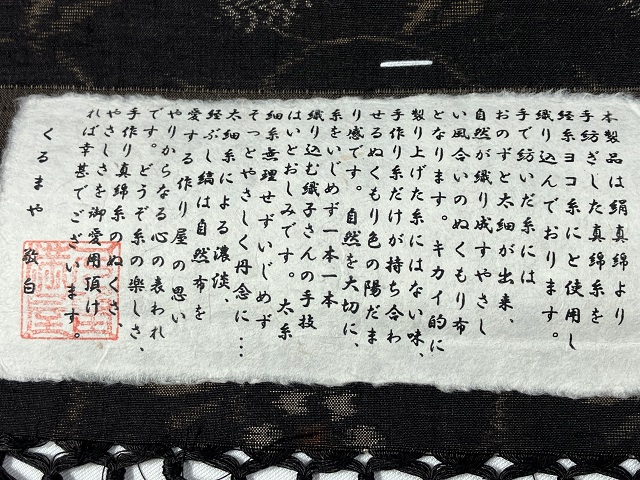 本品は絹真綿より
手紡ぎした真綿糸を
経糸ヨコ糸にと使用し
織り込んでおります。
手で紡いだ糸には
おのずと太細が出来、
自然が織り成すやさし
い風合いのぬくもり布
となります。キカイ的に
製り上げた糸にはない味、
手作り糸だけが持ち合わ
せるぬくもり色の陽だま
り感です。自然を大切に、
糸をいじめず一本一本
織り込む織子さんの手技
はいとおしみです。太糸
細糸無理せずいじめず
そっとやさしく丹念に…
太細糸による濃淡、
経ぶし縞は自然布を
愛する作り屋の思い
やりからなる心の表われ
です。どうぞ糸の楽しさ、
手作り真綿糸のぬくさ、
やさしさを御愛用頂け
れば幸甚でございます。
くるまや 敬白